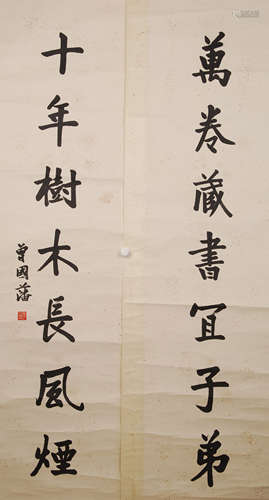 萬卷藏書宜子弟
十年樹木長風煙
曾國藩